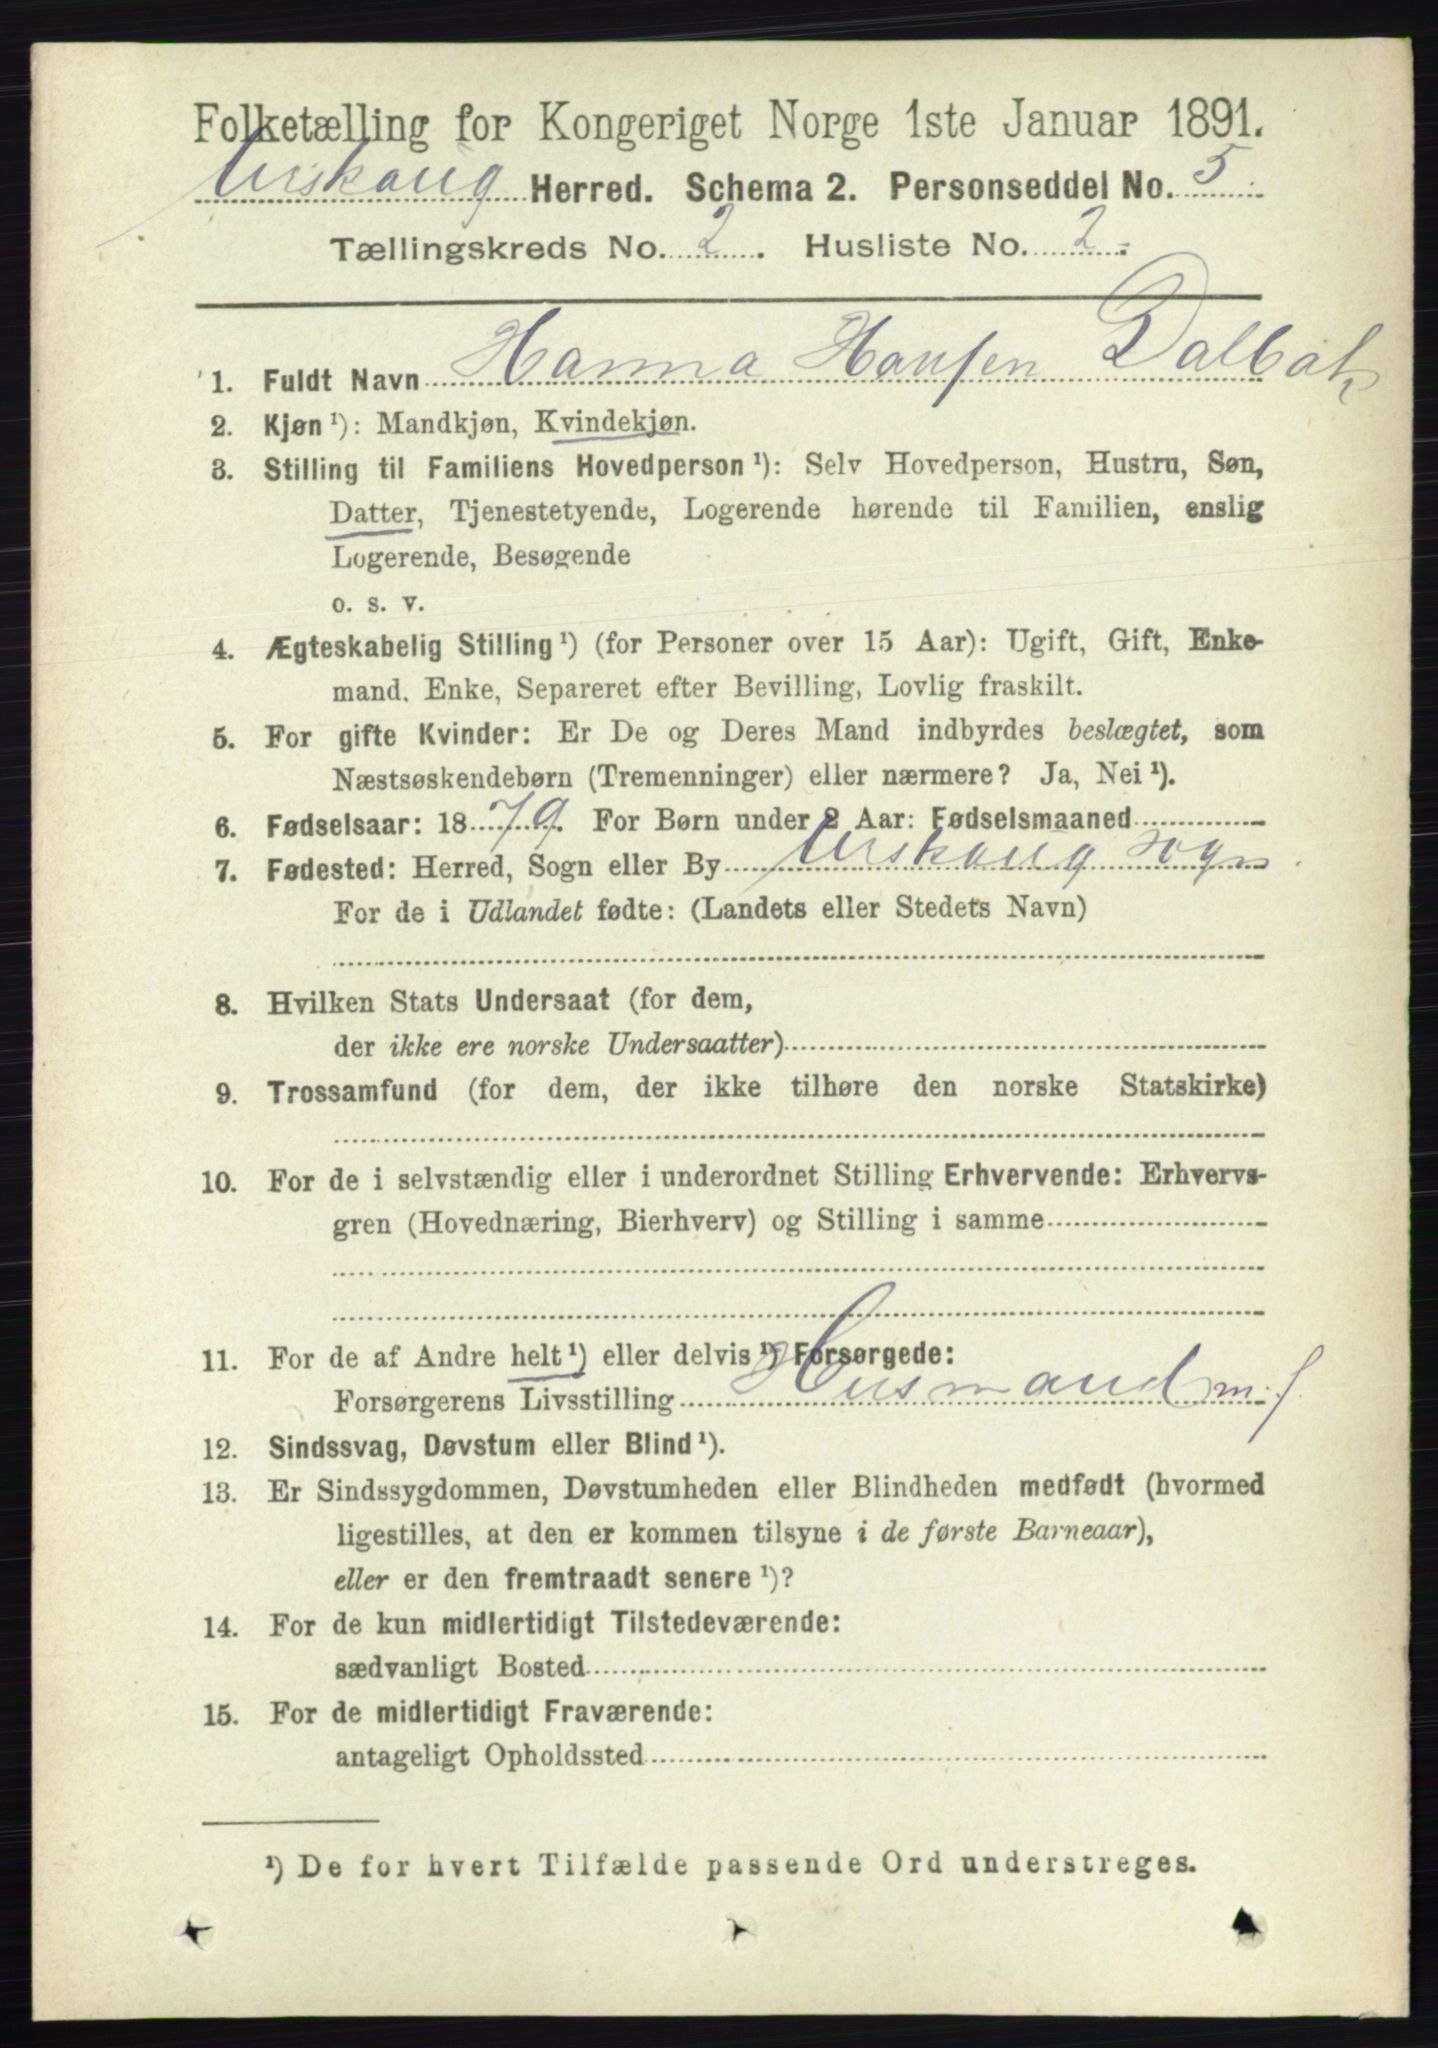 Folketælling for Kongeriget Norge 1ste Januar 1891.
Urskoug Herred. Schema 2. Personseddel No. 5
Tællingskreds No. 2. Husliste No. 2.
1. Fuldt Navn Hanna Hansen Dalbak
2. Kjøn ¹): Mandkjøn, Kvindekjøn.
3. Stilling til Familiens Hovedperson ¹): Selv Hovedperson, Hustru, Søn,
Datter, Tjenestetyende, Logerende hørende til Familien, enslig
Logerende, Besøgende
o. s. v.
4. Ægteskabelig Stilling ¹) (for Personer over 15 Aar): Ugift, Gift, Enke-
mand. Enke, Separeret efter Bevilling, Lovlig fraskilt.
5. For gifte Kvinder: Er De og Deres Mand indbyrdes beslægtet, som
Næstsøskendebørn (Tremenninger) eller nærmere? Ja, Nei ¹).
6. Fødselsaar: 1879. For Børn under 2 Aar: Fødselsmaaned
7. Fødested: Herred, Sogn eller By Urskoug sogn
For de i Udlandet fødte: (Landets eller Stedets Navn)
8. Hvilken Stats Undersaat (for dem,
der ikke ere norske Undersaatter)
9. Trossamfund (for dem, der ikke tilhøre den norske Statskirke)
10. For de i selvstændig eller i underordnet Stilling Erhvervende: Erhvervs-
gren (Hovednæring, Bierhverv) og Stilling i samme
11. For de af Andre helt ¹) eller delvis ¹) Forsørgede:
Forsørgerens Livsstilling Husmand m. j.
12. Sindssvag, Døvstum eller Blind ¹).
13. Er Sindssygdommen, Døvstumheden eller Blindheden medfødt (hvormed
ligestilles, at den er kommen tilsyne i de første Barneaar),
eller er den fremtraadt senere ¹)?
14. For de kun midlertidigt Tilstedeværende:
sædvanligt Bosted
15. For de midlertidigt Fraværende:
antageligt Opholdssted
¹) De for hvert Tilfælde passende Ord understreges.